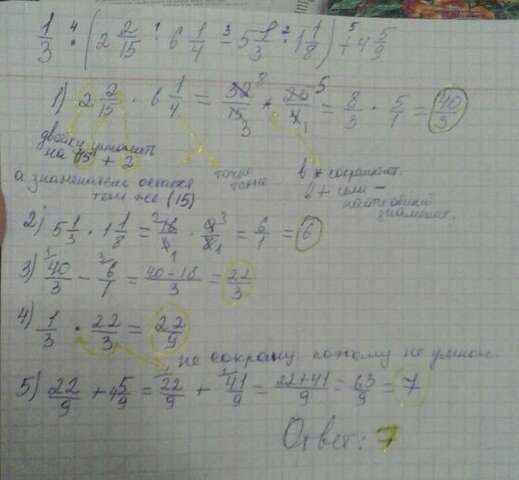 1/3 · (2 2/15 · 6 1/4 − 5 1/3 · 1 1/8) + 4 5/9
1) 2 2/15 · 6 1/4 = 32/15 · 25/4 = 8/3 · 5/1 = 40/3
двойку умножить
на 15 + 2
а знаменатель остается
тем же (15)
точно
тоже
в * сокращают.
в + или −
знаменат.
2) 5 1/3 · 1 1/8 = 16/3 · 9/8 = 6/1 = 6
3) 40/3 − 6/1 = 40−18/3 = 22/3
4) 1/3 · 22/3 = 22/9
не сокращ. поэтому не умнож.
5) 22/9 + 4 5/9 = 22/9 + 41/9 = 22+41/9 = 63/9 = 7
Ответ: 7